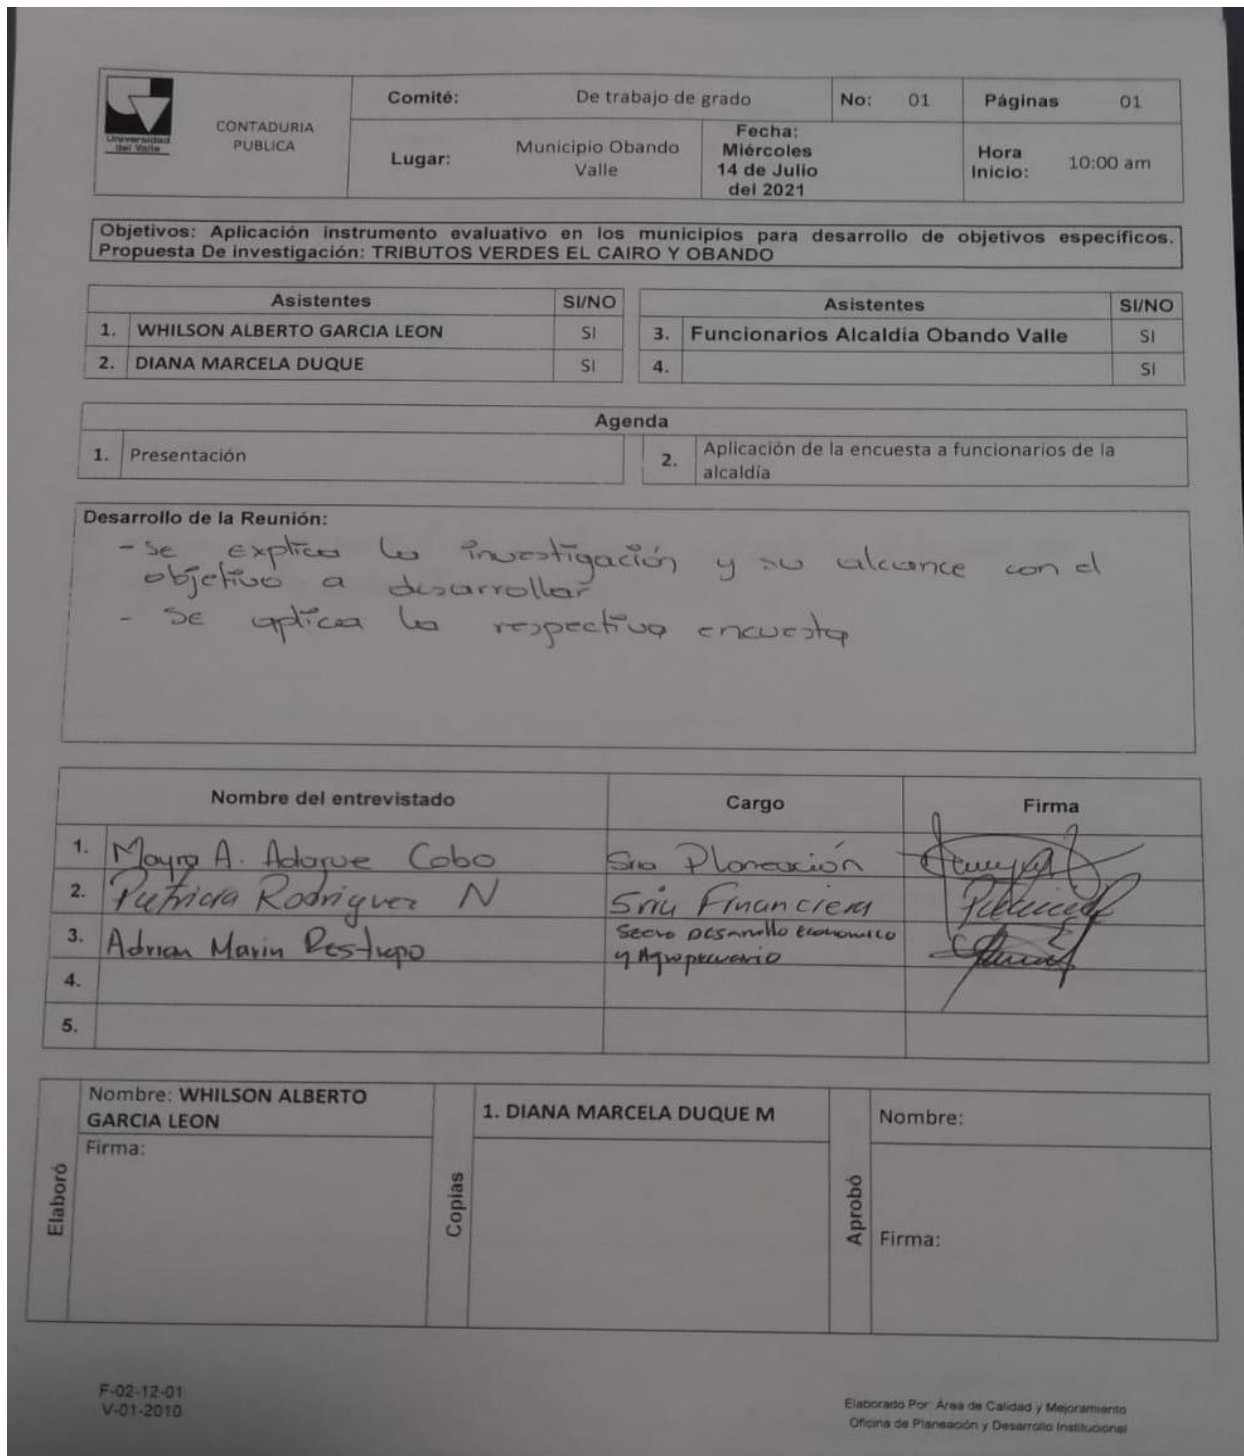 Universidad
del Valle
CONTADURIA
PUBLICA
Comité:
De trabajo de grado
No: 01
Páginas 01
Lugar:
Municipio Obando
Valle
Fecha:
Miércoles
14 de Julio
del 2021
Hora
Inicio:
10:00 am
Objetivos: Aplicación instrumento evaluativo en los municipios para desarrollo de objetivos específicos.
Propuesta De investigación: TRIBUTOS VERDES EL CAIRO Y OBANDO
Asistentes SI/NO
1. WHILSON ALBERTO GARCIA LEON SI
2. DIANA MARCELA DUQUE SI
Asistentes SI/NO
3. Funcionarios Alcaldía Obando Valle SI
4. SI
Agenda
1. Presentación
2. Aplicación de la encuesta a funcionarios de la
alcaldía
Desarrollo de la Reunión:
- Se explica la investigación y su alcance con el
objetivo a desarrollar
- Se aplica la respectiva encuesta
Nombre del entrevistado Cargo Firma
1. Mayra A. Adarve Cobo Sria Planeación
2. Patricia Rodriguez N Sria Financiera
3. Adrian Marin Restrepo Secro Desarrollo Economico
y Agropecuario
4.
5.
Elaboró
Nombre: WHILSON ALBERTO
GARCIA LEON
Firma:
Copias
1. DIANA MARCELA DUQUE M
Aprobó
Nombre:
Firma:
F-02-12-01
V-01-2010
Elaborado Por: Área de Calidad y Mejoramiento
Oficina de Planeación y Desarrollo Institucional